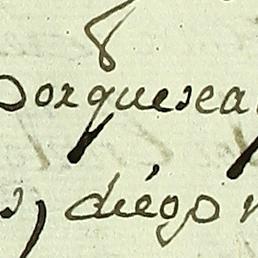 Porquesea
s, diego